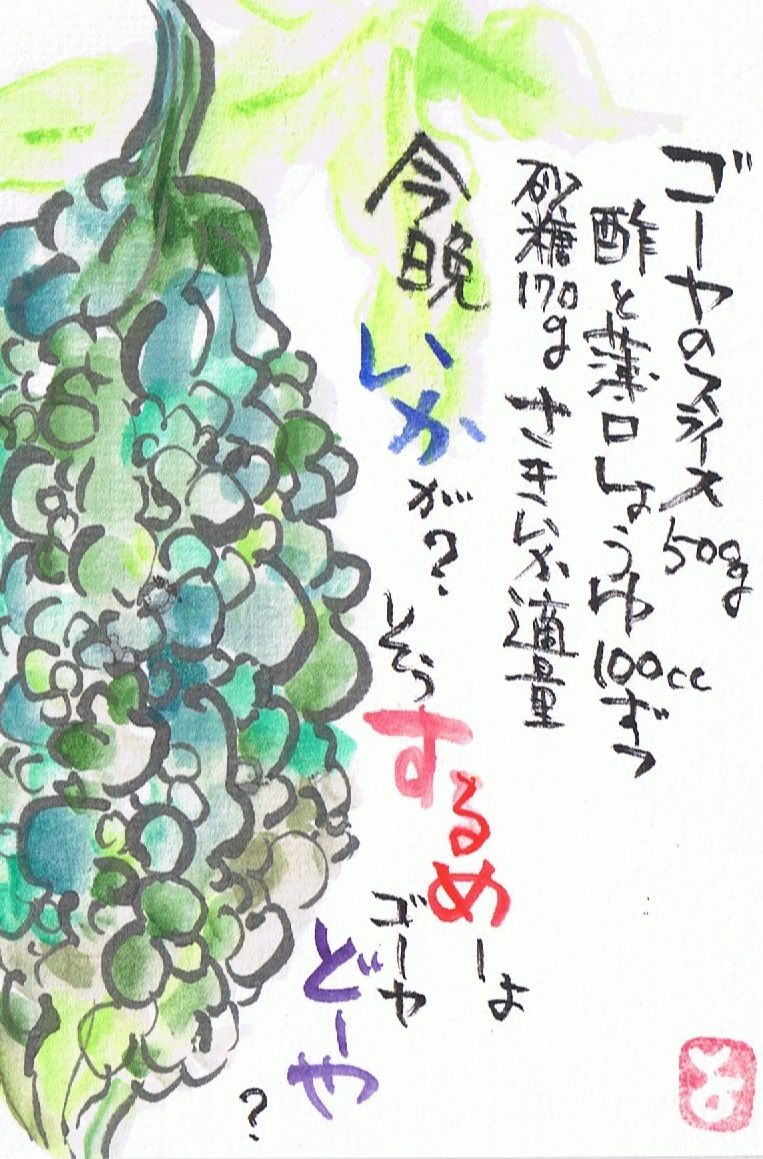 ゴーヤのスライス50g
酢と薄口しょうゆ100ccずつ
砂糖170g さきいか適量
今晩いかが?
そうするめーよ
ゴーヤ
どーや?
と